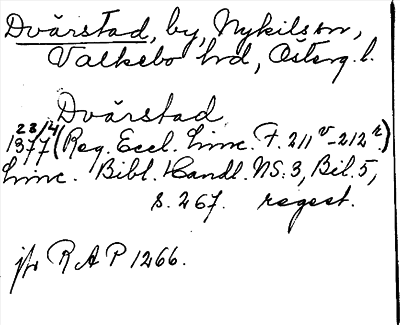 Dvärstad, by, Nykils sn,
Valkebo hd, Österg. l.
Dvärstad
23/4
1377 (Reg. Eccl. Linc. F. 211v-212r.)
Linc. Bibl. Handl. NS. 3, Bil. 5,
s. 267. regest.
jfr RAP 1266.